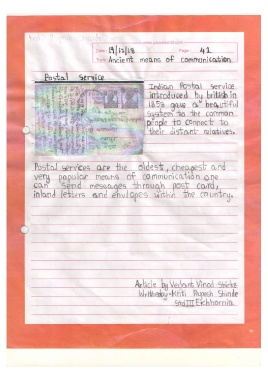 Date 19/12/18 Page 42
Ancient means of communication
Postal Service
Indian Postal service
introduced by british in
1858 gave a beautiful
system to the common
people to connect to
their distant relatives.
Postal services are the oldest, cheapest and
very popular means of communication one
can send messages through post card,
inland letters and envlopes within the country.
Article by Vedant Vinod
Written by-Kriti Rupesh Shinde
Std III Eichhornia